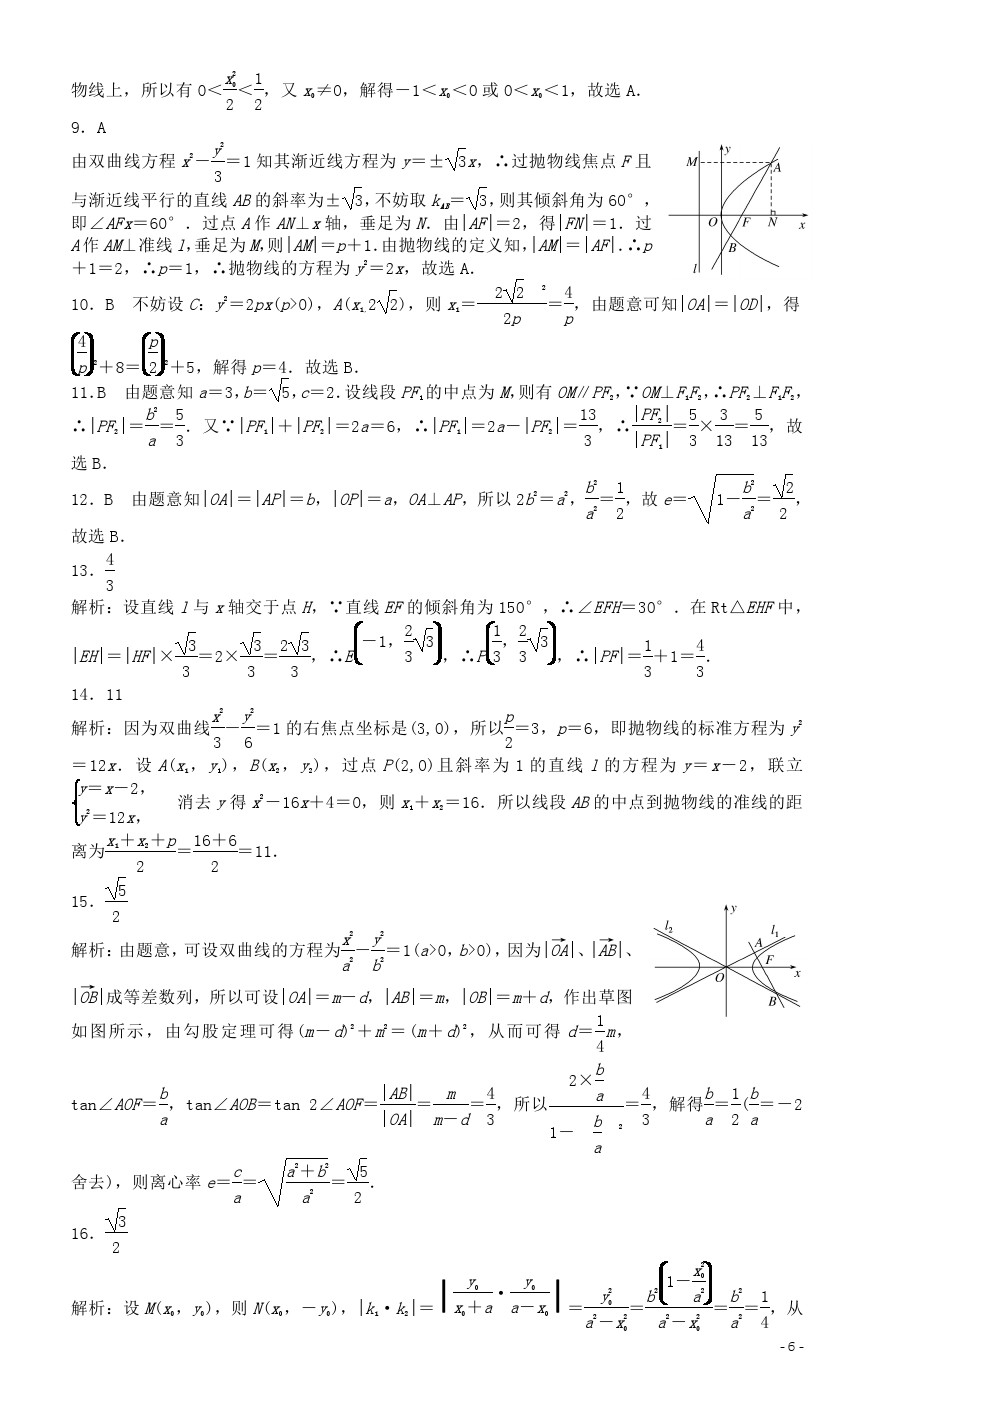 物线上，所以有 0＜x₀²/2＜1/2，又 x₀≠0，解得－1＜x₀＜0 或 0＜x₀＜1，故选 A．
9．A
由双曲线方程 x²－y²/3＝1 知其渐近线方程为 y＝±√3x，∴过抛物线焦点 F 且
与渐近线平行的直线 AB 的斜率为±√3，不妨取 k_AB＝√3，则其倾斜角为 60°，
即∠AFx＝60°．过点 A 作 AN⊥x 轴，垂足为 N．由|AF|＝2，得|FN|＝1．过
A 作 AM⊥准线 l，垂足为 M，则|AM|＝p＋1．由抛物线的定义知，|AM|＝|AF|．∴p
＋1＝2，∴p＝1，∴抛物线的方程为 y²＝2x，故选 A．
y
M
A
O
F
N
x
B
l
10．B　不妨设 C：y²＝2px(p>0)，A(x₁，2√2)，则 x₁＝2√2 ²/2p＝4/p，由题意可知|OA|＝|OD|，得
(4/p)²＋8＝(p/2)²＋5，解得 p＝4．故选 B．
11.B　由题意知 a＝3，b＝√5，c＝2．设线段 PF₁的中点为 M，则有 OM∥PF₂，∵OM⊥F₁F₂，∴PF₂⊥F₁F₂，
∴|PF₂|＝b²/a＝5/3．又∵|PF₁|＋|PF₂|＝2a＝6，∴|PF₁|＝2a－|PF₂|＝13/3，∴|PF₂|/|PF₁|＝5/3×3/13＝5/13，故
选 B．
12．B　由题意知|OA|＝|AP|＝b，|OP|＝a，OA⊥AP，所以 2b²＝a²，b²/a²＝1/2，故 e＝√(1－b²/a²)＝√2/2，
故选 B．
13．4/3
解析：设直线 l 与 x 轴交于点 H，∵直线 EF 的倾斜角为 150°，∴∠EFH＝30°．在 Rt△EHF 中，
|EH|＝|HF|×√3/3＝2×√3/3＝2√3/3，∴E(－1，2/3√3)，∴P(1/3，2/3√3)，∴|PF|＝1/3＋1＝4/3．
14．11
解析：因为双曲线x²/3－y²/6＝1 的右焦点坐标是(3,0)，所以p/2＝3，p＝6，即抛物线的标准方程为 y²
＝12x．设 A(x₁，y₁)，B(x₂，y₂)，过点 P(2,0)且斜率为 1 的直线 l 的方程为 y＝x－2，联立
{y＝x－2，
y²＝12x，　消去 y 得 x²－16x＋4＝0，则 x₁＋x₂＝16．所以线段 AB 的中点到抛物线的准线的距
离为(x₁＋x₂＋p)/2＝(16＋6)/2＝11．
15．√5/2
解析：由题意，可设双曲线的方程为x²/a²－y²/b²＝1(a>0，b>0)，因为|OA→|、|AB→|、
|OB→|成等差数列，所以可设|OA|＝m－d，|AB|＝m，|OB|＝m＋d，作出草图
如图所示，由勾股定理可得(m－d)²＋m²＝(m＋d)²，从而可得 d＝1/4m，
y
l₂
l₁
A
F
O
x
B
tan∠AOF＝b/a，tan∠AOB＝tan 2∠AOF＝|AB|/|OA|＝m/(m－d)＝4/3，所以(2×b/a)/(1－ b/a ²)＝4/3，解得b/a＝1/2(b/a＝－2
舍去)，则离心率 e＝c/a＝√((a²＋b²)/a²)＝√5/2．
16．√3/2
解析：设 M(x₀，y₀)，则 N(x₀，－y₀)，|k₁·k₂|＝|y₀/(x₀＋a)·y₀/(a－x₀)|＝y₀²/(a²－x₀²)＝b²(1－x₀²/a²)/(a²－x₀²)＝b²/a²＝1/4，从
- 6 -